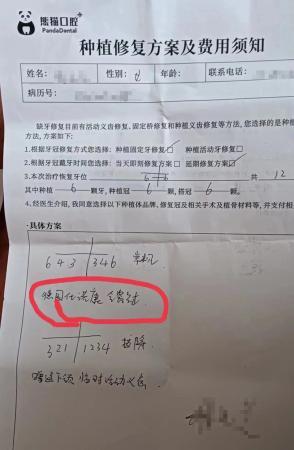 熊猫口腔
PandaDental
种植修复方案及费用须知
姓名： 性别： 年龄： 联系电话：
病历号：
缺牙修复目前有活动义齿修复、固定桥修复和种植义齿修复等方法，您选择的是种植
方法，方案如下：
1.根据牙冠修复方式您选择：种植固定牙修复 种植活动牙修复
2.根据牙冠戴牙时间您选择：当天即刻修复方案 延期修复方案
3.本次治疗恢复牙位 共 12
其中种植 6 颗牙，种植冠 6 颗，搭冠 6 颗。
4.经医生介绍，我同意选择以下种植体品牌、修复冠及相关手术及植骨材料等，并支付相
具体方案
643 346
德国
321 1234 拔除
临时活动义齿